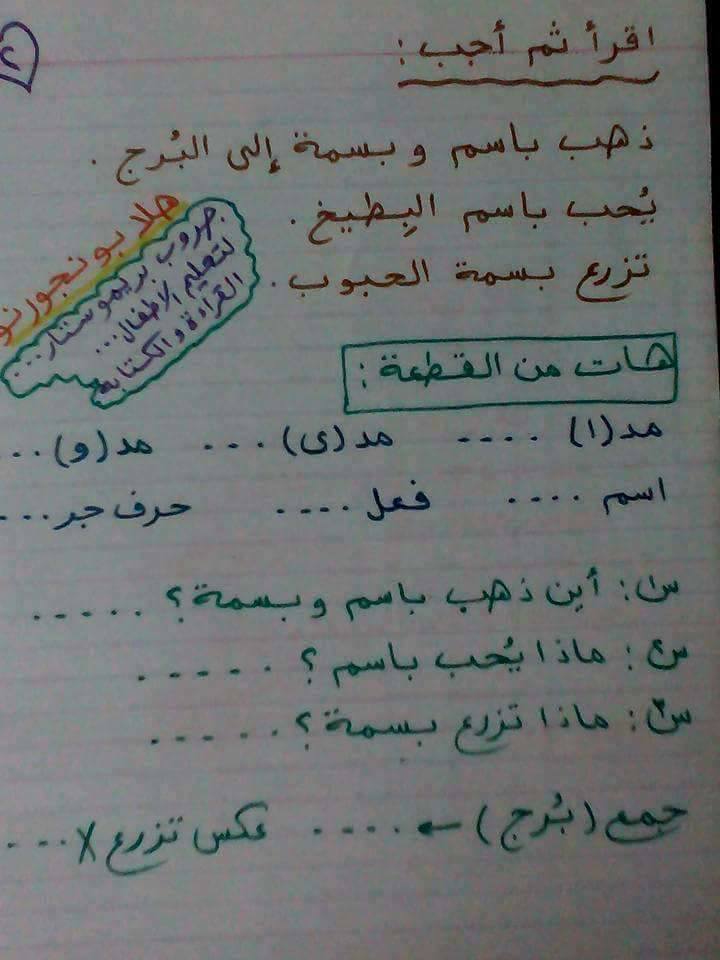 اقرأ ثم أجب :
ذهب باسم وبسمة إلى البُرج .
يُحب باسم البِطيخ .
تزرع بسمة الحبوب .
جروب بريمو ستار ...
لتعليم الأطفال ...
القراءة والكتابة
هات من القطعة :
مد (ا) .... مد (ى) ... مد (و) ...
اسم .... فعل .... حرف جر ....
س١: أين ذهب باسم وبسمة ؟ .....
س٢: ماذا يُحب باسم ؟ ......
س٣: ماذا تزرع بسمة ؟ ......
جمع (بُرج) ← .... عكس تزرع X ....